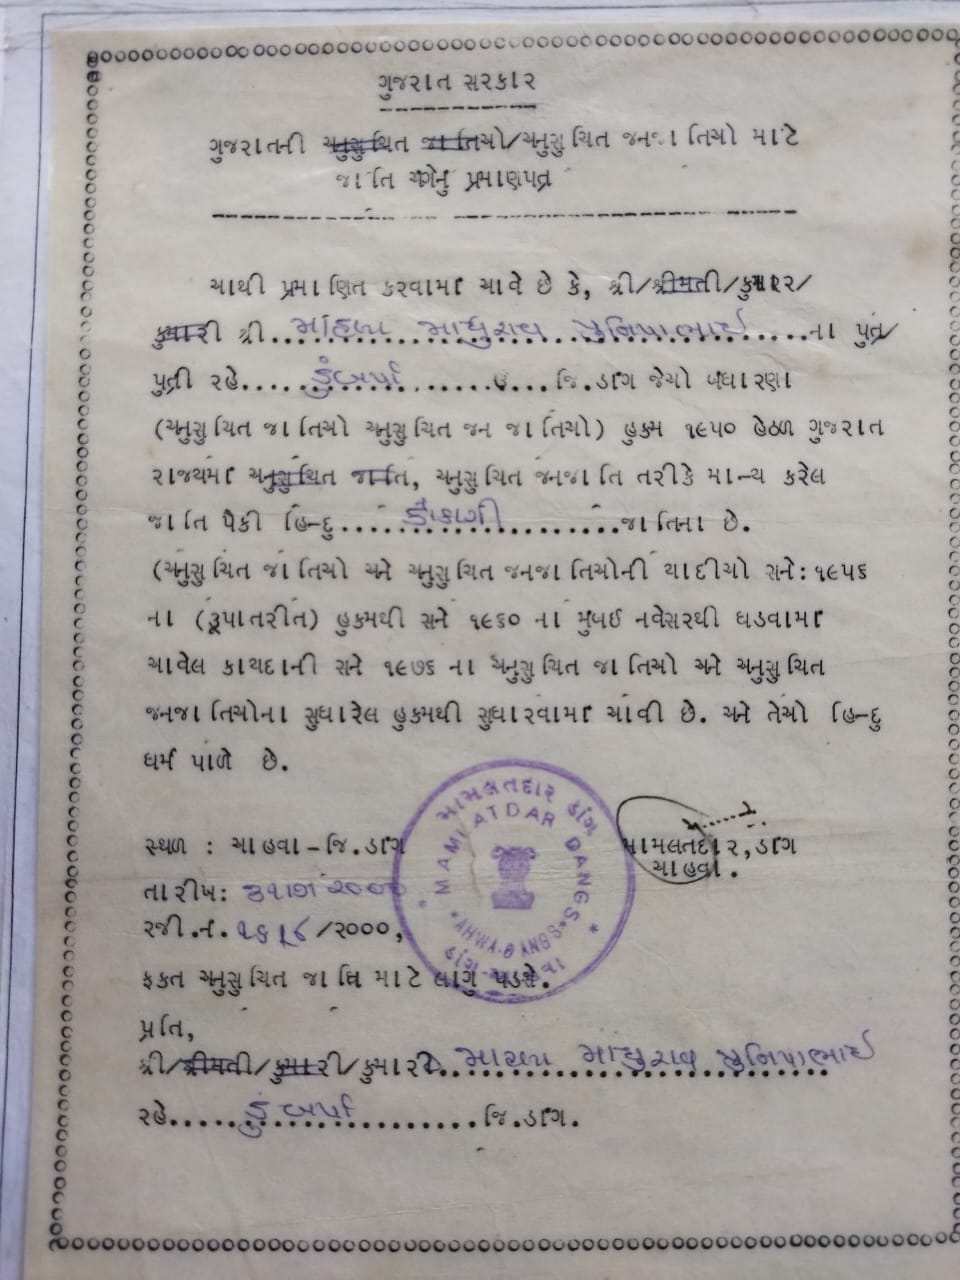 ગુજરાત સરકાર
ગુજરાતની અનુસુચિત જાતિઓ/અનુસુચિત જનજાતિઓ માટે
જાતિ અંગેનું પ્રમાણપત્ર
આથી પ્રમાણિત કરવામાં આવે છે કે, શ્રી/શ્રીમતી/કુમાર/
કુમારી શ્રી.... માહલા માધુરાવ સુનિપાભાઈ ....ના પુત્ર/
પુત્રી રહે.... ....જિ.ડાંગ જેઓ બંધારણા
(અનુસુચિત જાતિઓ અનુસુચિત જન જાતિઓ) હુકમ ૧૯૫૦ હેઠળ ગુજરાત
રાજયમાં અનુસુચિત જાતિ, અનુસુચિત જનજાતિ તરીકે માન્ય કરેલ
જાતિ પૈકી હિન્દુ.... કોકણી ....જાતિના છે.
(અનુસુચિત જાતિઓ અને અનુસુચિત જનજાતિઓની યાદીઓ સને:૧૯૫૬
ના (રૂપાંતરીત) હુકમથી સને ૧૯૬૦ ના મુંબઈ નવેસરથી ઘડવામાં
આવેલ કાયદાની સને ૧૯૭૬ ના અનુસુચિત જાતિઓ અને અનુસુચિત
જનજાતિઓના સુધારેલ હુકમથી સુધારવામાં આવી છે. અને તેઓ હિન્દુ
ધર્મ પાળે છે.
મામલતદાર ડાંગ
MAMLATDAR DANGS
AHWA-DANGS
સ્થળ : આહવા-જિ.ડાંગ
મામલતદાર,ડાંગ
આહવા.
તારીખ:
રજી.નં. /૨૦૦૦,
ફકત અનુસુચિત જાતિ માટે લાગુ પડશે.
પ્રતિ,
શ્રી/શ્રીમતી/કુમારી/કુમાર.... માધુરાવ સુનિપાભાઈ
રહે.... ....જિ.ડાંગ.